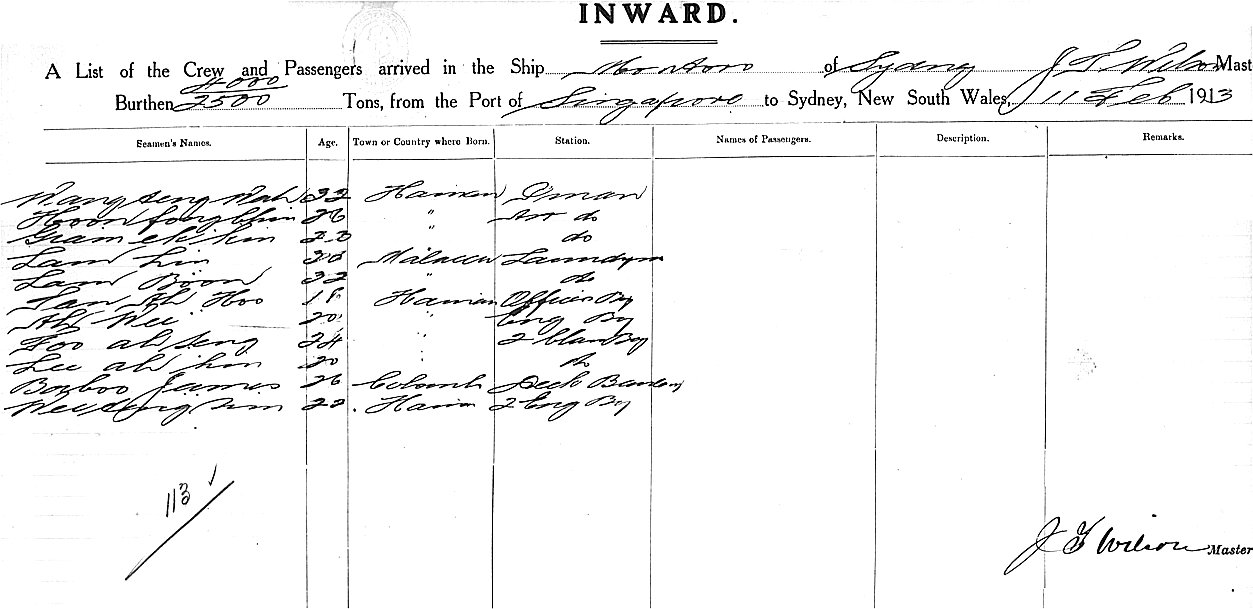 INWARD.
A List of the Crew and Passengers arrived in the Ship Montoro of Sydney J F Wilson Mast
4000
Burthen 2500 Tons, from the Port of Singapore to Sydney, New South Wales, 11 Feb 1913
Seamen's Names. Age. Town or Country where Born. Station. Names of Passengers. Description. Remarks.
Wang Seng Wah 32 Hainan
26 " do
23 " do
Lam Malacca Laundryman
Lam Boon 32 " do
Tan Ah Hoo 18 Hainan Officers By
Ah Wee 20 " Eng By
Foo ah Seng 24 " 2 By
Lee ah 20 " do
Baboo James 26 Colombo Deck
22 Hainan 2 Eng By
113
J F Wilson Master